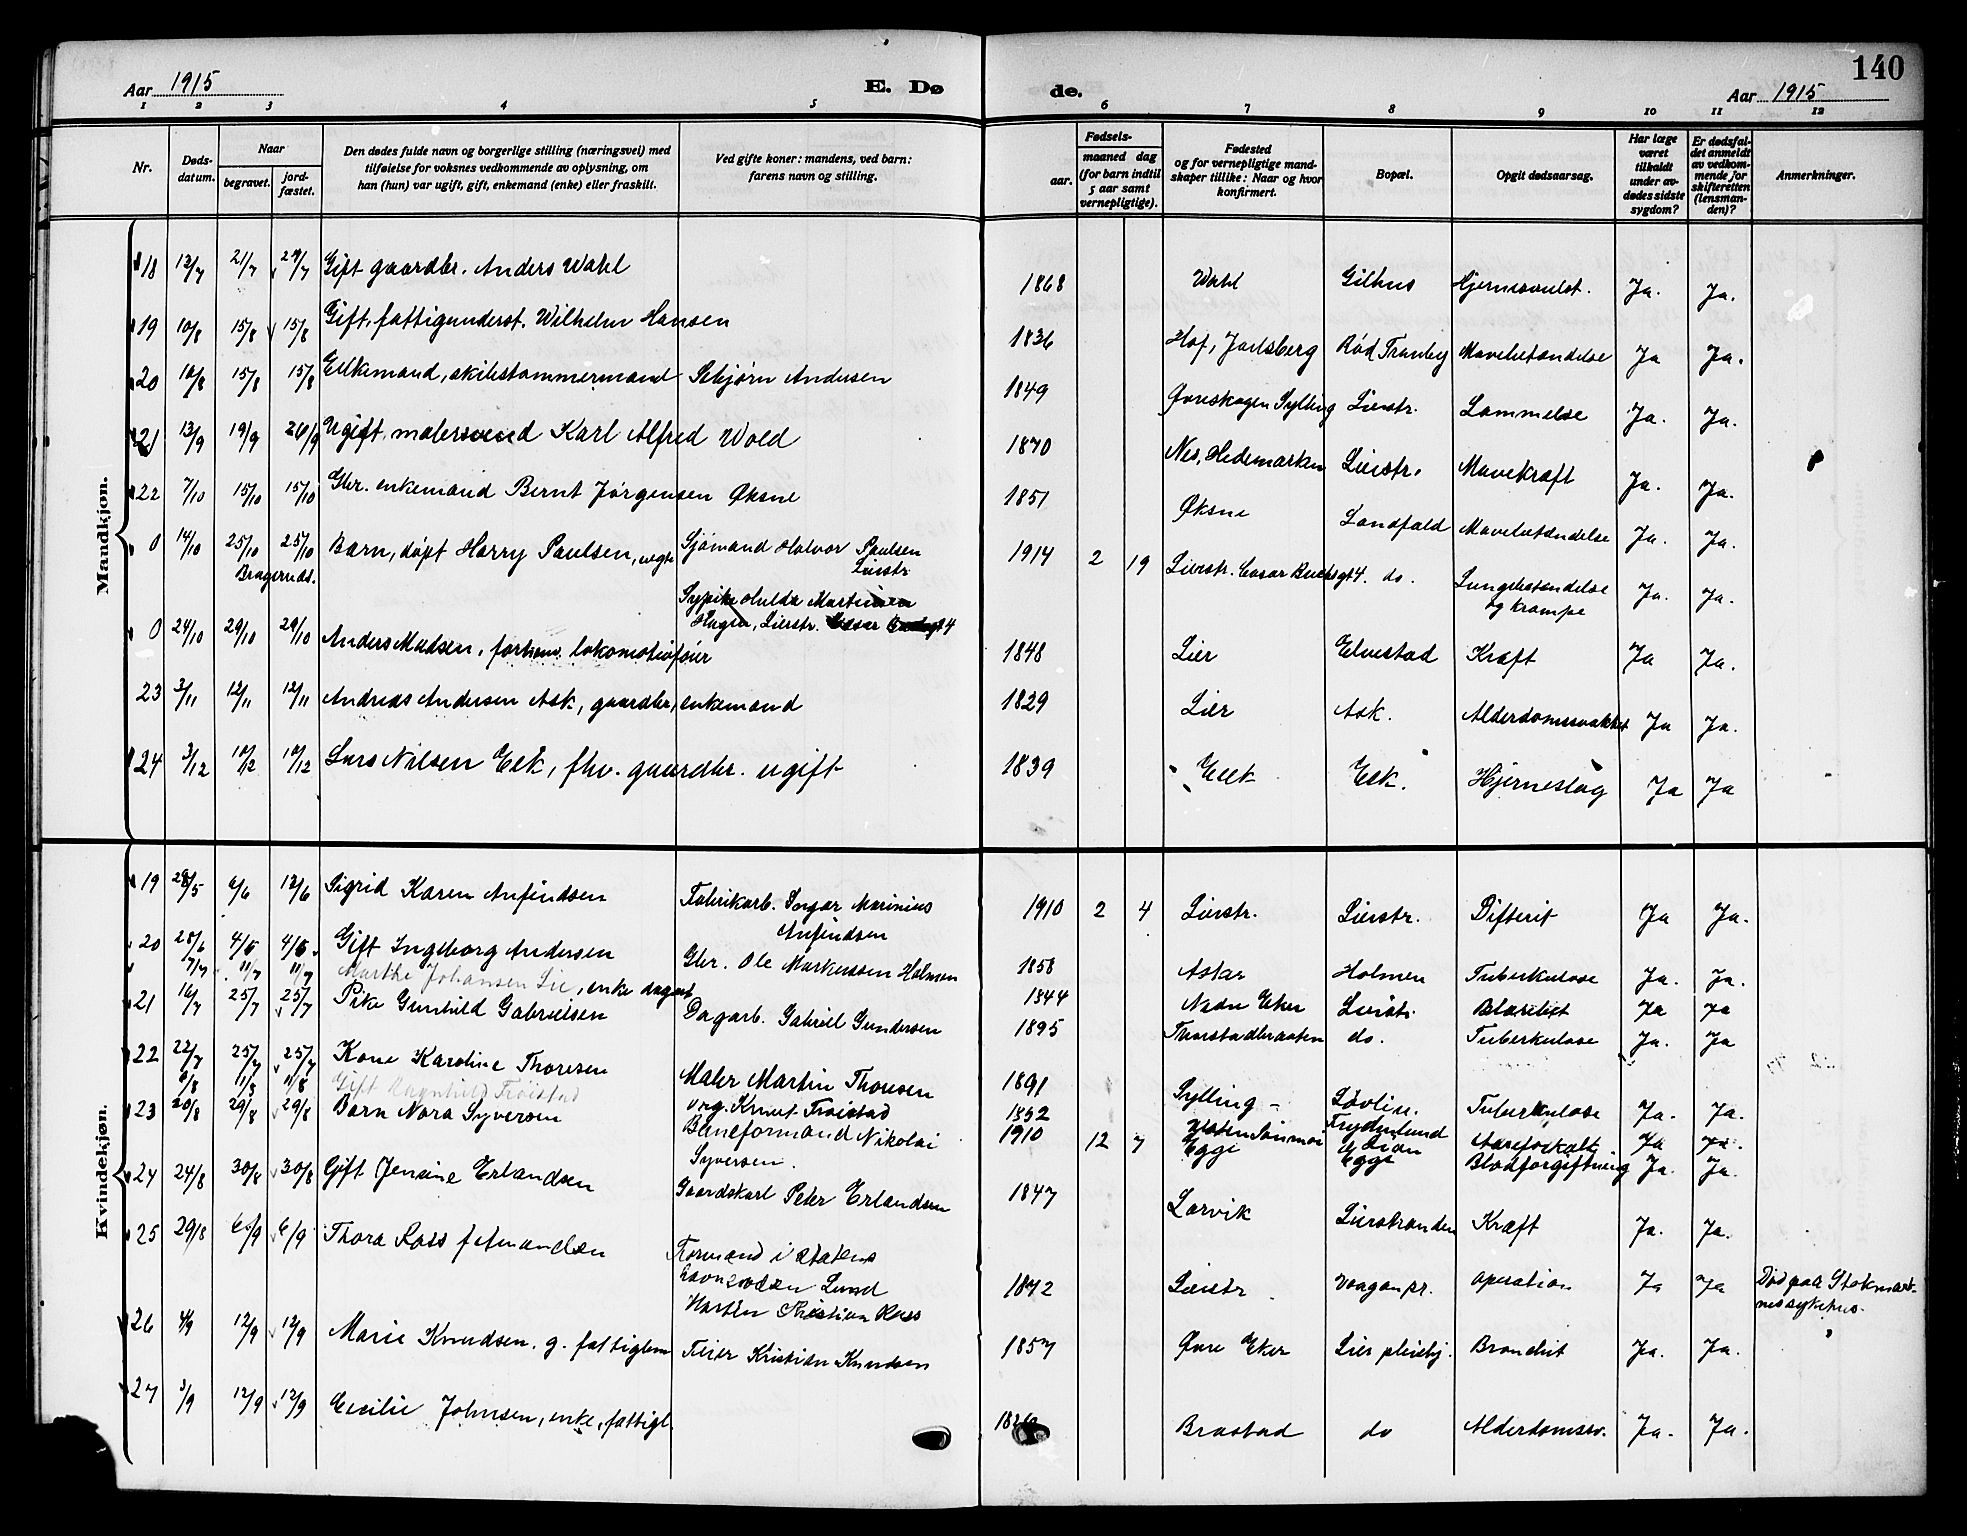 140
Aar 1915 E. Dø de. Aar 1915
1 2 3 4 5 6 7 8 9 10 11 12
Nr. Døds-datum. Naar begravet. jord-fæstet. Den dødes fulde navn og borgerlige stilling (næringsvei) med tilføielse for voksnes vedkommende av oplysning, om han (hun) var ugift, gift, enkemand (enke) eller fraskilt. Ved gifte koner: mandens, ved barn: farens navn og stilling. Fødsels- aar. maaned dag (for barn indtil 5 aar samt vernepligtige). Fødested og for vernepligtige mandskaper tillike: Naar og hvor konfirmert. Bopæl. Opgit dødsaarsag. Har læge været tilkaldt under avdødes sidste sygdom? Er dødsfaldet anmeldt av vedkommende for skifteretten (lensmanden)? Anmerkninger.
Mandkjøn.
18 13/7 21/7 24/7 Gift gaardbr. Anders Wahl 1868 Wahl Gilhus Hjernesvulst. Ja. Ja.
19 10/8 15/8 15/8 Gift, fattigunderst. Wilhelm Hansen 1836 Hof, Jarlsberg Rød Tranby Mavebetændelse Ja Ja.
20 10/8 15/8 15/8 Enkemand, skibstømmermand Asbjørn Andersen 1849 Øvreskogen Sylling Lierstr. Lammelse Ja. Ja.
21 13/9 19/9 26/9 Ugift, malersvend Karl Alfred Wold 1870 Nes, Hedemarken Lierstr. Mavekræft Ja. Ja.
22 7/10 15/10 15/10 Gbr. enkemand Bernt Jørgensen Øksne 1851 Øksne Landfald Mavebetændelse Ja. Ja.
0 14/10 25/10 25/10 Barn, døpt Harry Paulsen, uegte Sjømand Halvor Paulsen 1914 2 19 Lierstr. Cæsar Buchsgt 4. do. Lungebetændelse Ja. Ja.
Bragernes. Lierstr. og krampe
Sypike Hulda Martinsen
Hagen, Lierstr.
0 24/10 29/10 29/10 Anders Madsen, forhenv. lokomotivfører 1848 Lier Elvestad Kræft Ja Ja.
23 3/11 12/11 12/11 Andreas Andersen Ask, gaardbr, enkemand 1829 Lier Ask. Alderdomssvakhet Ja Ja.
24 3/12 10/12 10/12 Lars Nilsen Eek, fhv. gaardbr. ugift 1839 Eek Eek. Hjerneslag Ja Ja
Kvindekjøn.
19 28/5 6/6 12/6 Sigrid Karen Anfindsen Fabrikarb. Ingar Marinius 1910 2 4 Lierstr. Lierstr. Difterit Ja Ja.
Anfindsen
20 25/6 4/6 4/6 Gift Ingeborg Andersen Gbr. Ole Markussen Holmen 1858 Asker Holmen Tuberkulose Ja. Ja.
7/7 11/7 11/7 Marthe Johansen Lie, enke 1844 Nedre Eker Lierstr. Ja Ja
21 16/7 25/7 25/7 Pike Gunhild Gabrielsen Dagarb. Gabriel Gundersen 1895 Thorstadbraaten do. Tuberkulose Ja. Ja
22 22/7 25/7 25/7 Kone Karoline Thoresen Maler Martin Thoresen 1891 Sylling Løvlien. Tuberkulose Ja. Ja.
6/8 11/8 11/8 Gift Ragnhild Trøistad Knut Trøistad Frydenlund Aareforkalk Ja Ja.
23 20/8 29/8 29/8 Barn Nora Syversen Baneformand Nikolai 1910 12 7 Egge Egge Blodforgiftning Ja. Ja.
Syversen.
24 24/8 30/8 30/8 Gift Jensine Erlandsen Gaardskarl Peter Erlandsen 1847 Larvik Lierstranden Kræft Ja. Ja.
25 29/8 6/9 6/9 Thora Ross Formand i statens 1872 Lierstr. Vaagan pr. operation Ja Ja Død paa Stokmark-
havnevæsen Lund nes sykehus.
Martin Kristian Ross
26 4/9 12/9 12/9 Marie Knudsen. g. fattiglem Feier Kristian Knudsen 1857 Øvre Eker Lier pleiehj. Bronchit Ja. Ja.
27 3/9 12/9 12/9 Cecilie Johnsen, enke, fattigl. Brastad do Alderdomssv. Ja. Ja.